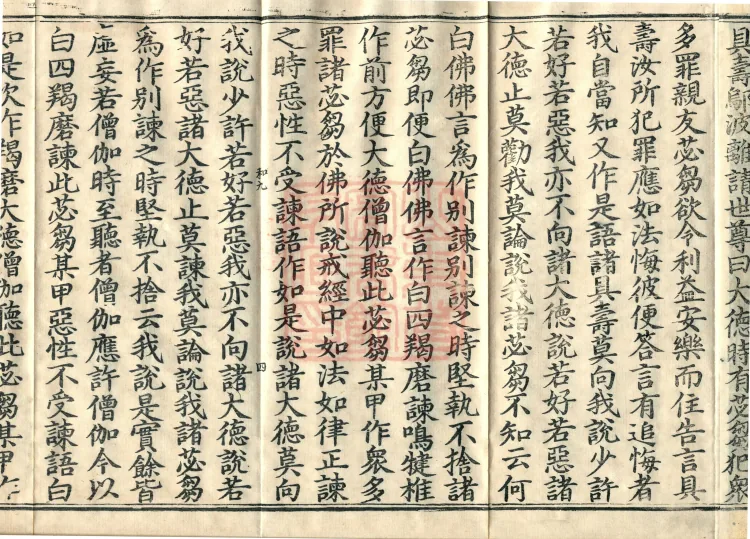 具壽鄔波離請世尊曰大德時有苾芻犯衆
多罪親友苾芻欲令利益安樂而住告言具
壽汝所犯罪應如法悔彼便答言有追悔者
我自當知又作是語諸具壽莫向我說少許
若好若惡我亦不向諸大德說若好若惡諸
大德止莫勸我莫論說我諸苾芻不知云何
白佛佛言為作別諫別諫之時堅執不捨諸
苾芻即便白佛佛言作白四羯磨諫鳴犍椎
作前方便大德僧伽聽此苾芻某甲作衆多
罪諸苾芻於佛所說戒經中如法如律正諫
之時惡性不受諫語作如是說諸大德莫向
和九 四
我說少許若好若惡我亦不向諸大德說若
好若惡諸大德止莫諫我莫論說我諸苾芻
為作別諫之時堅執不捨云我說是實餘皆
虛妄若僧伽時至聽者僧伽應許僧伽今以
白四羯磨諫此苾芻某甲惡性不受諫語白
如是次作羯磨大德僧伽聽此苾芻某甲作